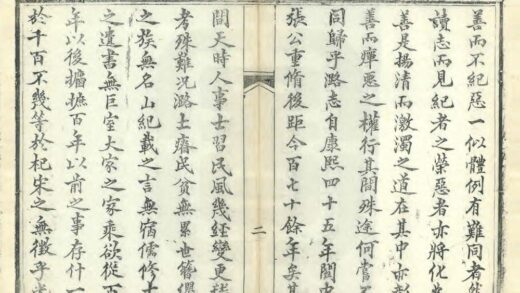 善而不紀惡一似體例有難同者然
讀志而見紀者之榮惡者亦將化
善是揚清而激濁之道在其中亦彰
善而癉惡之權行其間殊途何嘗
同歸乎潞志自康熙四十五年閩中
張公重脩後距今百七十餘年矣其
二
間天時人事士習民風幾經變更
考殊難況潞土瘠民貧無累世簪纓
之族無名山紀載之言無宿儒修士
之遺書無巨室大家之家乘欲從
年以後攟摭百年以前之事存什一
於千百不幾等於杞宋之無徵乎